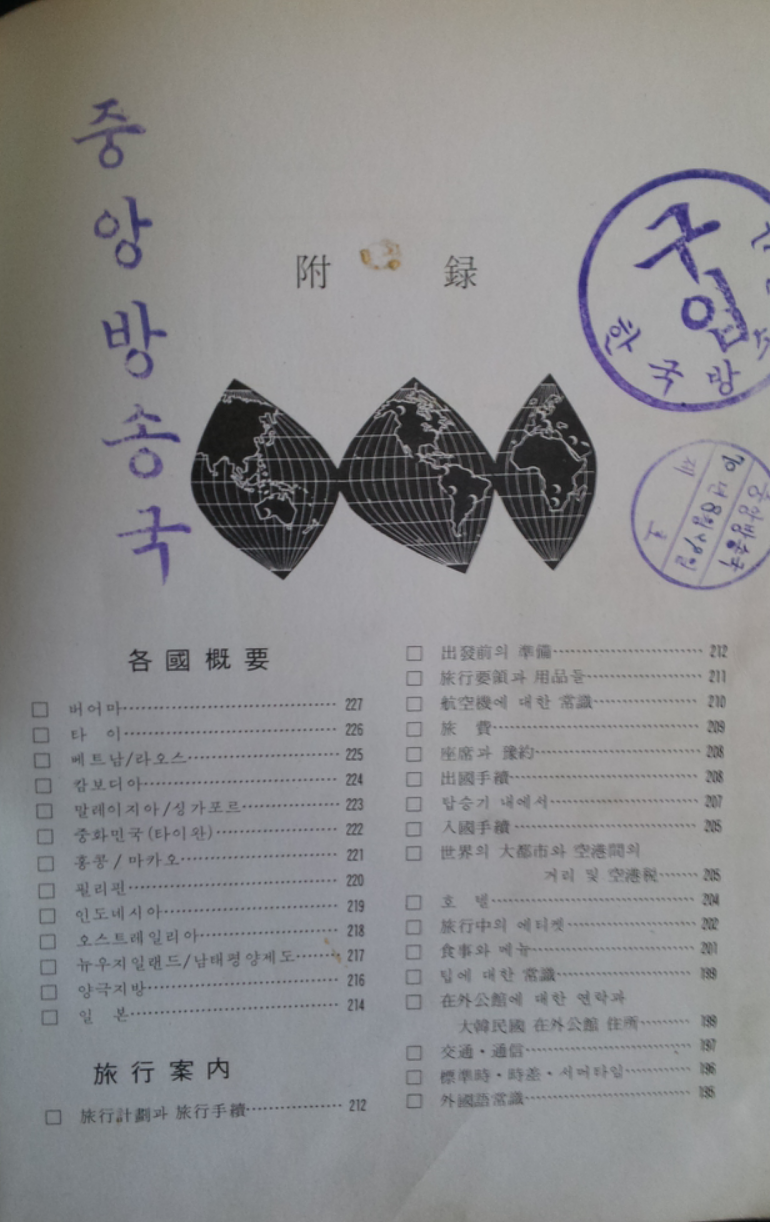 중앙방송국
附 録
구입
한국방
중앙방송국
70년 8월 49일
제 호
各國概要
□ 버어마 227
□ 타 이 226
□ 베트남/라오스 225
□ 캄보디아 224
□ 말레이지아/싱가포르 223
□ 중화민국(타이완) 222
□ 홍콩/마카오 221
□ 필리핀 220
□ 인도네시아 219
□ 오스트레일리아 218
□ 뉴우지일랜드/남태평양제도 217
□ 양극지방 216
□ 일 본 214
旅行案内
□ 旅行計劃과 旅行手續 212
□ 出發前의 準備 212
□ 旅行要領과 用品들 211
□ 航空機에 대한 常識 210
□ 旅 費 209
□ 座席과 豫約 208
□ 出國手續 208
□ 탑승기 내에서 207
□ 入國手續 205
□ 世界의 大都市와 空港間의
거리 및 空港稅 205
□ 호 텔 204
□ 旅行中의 에티켓 202
□ 食事와 메뉴 201
□ 팁에 대한 常識 199
□ 在外公館에 대한 연락과
大韓民國 在外公館 住所 198
□ 交通・通信 197
□ 標準時・時差・서머타임 196
□ 外國語常識 195